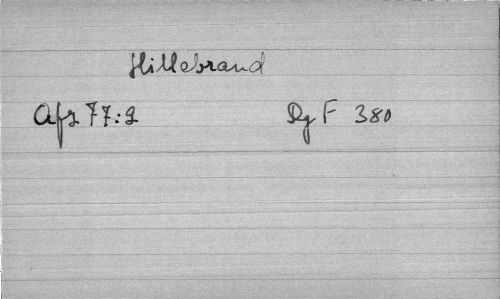 Hillebrand
Afz 77:2 Dg F 380